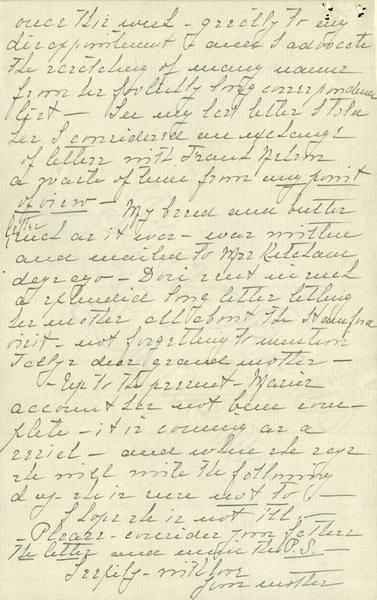 once this week - greatly to my
disappointment & amas I advocate
the scratching of many names
from her foolishly long correspondence
list - In my last letter I told
her, I considered an exchange
of letters with Frank Nelson
a waste of time from my point
of view - My bread and butter
letter
such as it was - was written
and mailed to Mrs Ketcham
days ago - Doris sent in such
a splendid long letter telling
her mother all about the Hanford
visit - not forgetting to mention
dear grand mother -
- Up to the present - Marie
account has not been com-
plete - it is coming as a
serial - and when she says
she will write the following
day - she is sure not to -
I hope she is not ill. -
- Please - consider your father
the letter and mine the P.S. -
Sleepily - with love
your mother